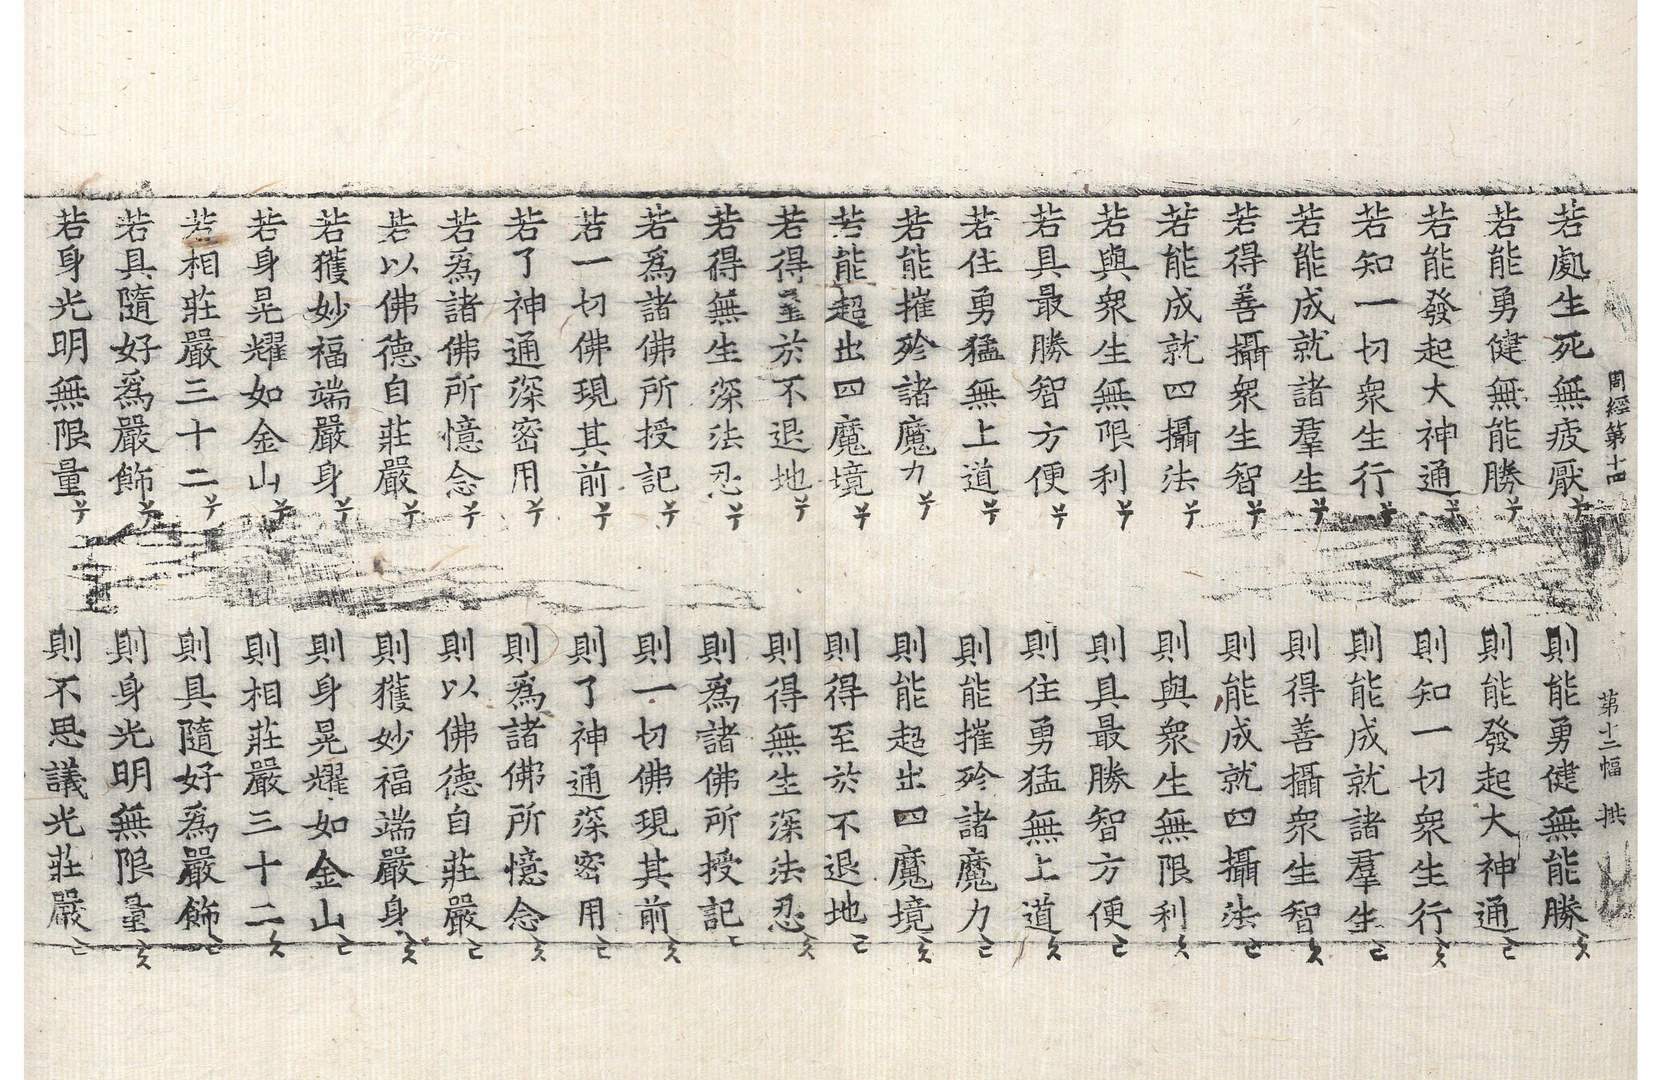 周經第十四 第十二幅 拱
若處生死無疲厭 則能勇健無能勝
若能勇健無能勝 則能發起大神通
若能發起大神通 則知一切衆生行
若知一切衆生行 則能成就諸羣生
若能成就諸羣生 則得善攝衆生智
若得善攝衆生智 則能成就四攝法
若能成就四攝法 則與衆生無限利
若與衆生無限利 則具最勝智方便
若具最勝智方便 則住勇猛無上道
若住勇猛無上道 則能摧殄諸魔力
若能摧殄諸魔力 則能超出四魔境
若能超出四魔境 則得至於不退地
若得至於不退地 則得無生深法忍
若得無生深法忍 則爲諸佛所授記
若爲諸佛所授記 則一切佛現其前
若一切佛現其前 則了神通深密用
若了神通深密用 則爲諸佛所憶念
若爲諸佛所憶念 則以佛德自莊嚴
若以佛德自莊嚴 則獲妙福端嚴身
若獲妙福端嚴身 則身晃耀如金山
若身晃耀如金山 則相莊嚴三十二
若相莊嚴三十二 則具隨好爲嚴飾
若具隨好爲嚴飾 則身光明無限量
若身光明無限量 則不思議光莊嚴